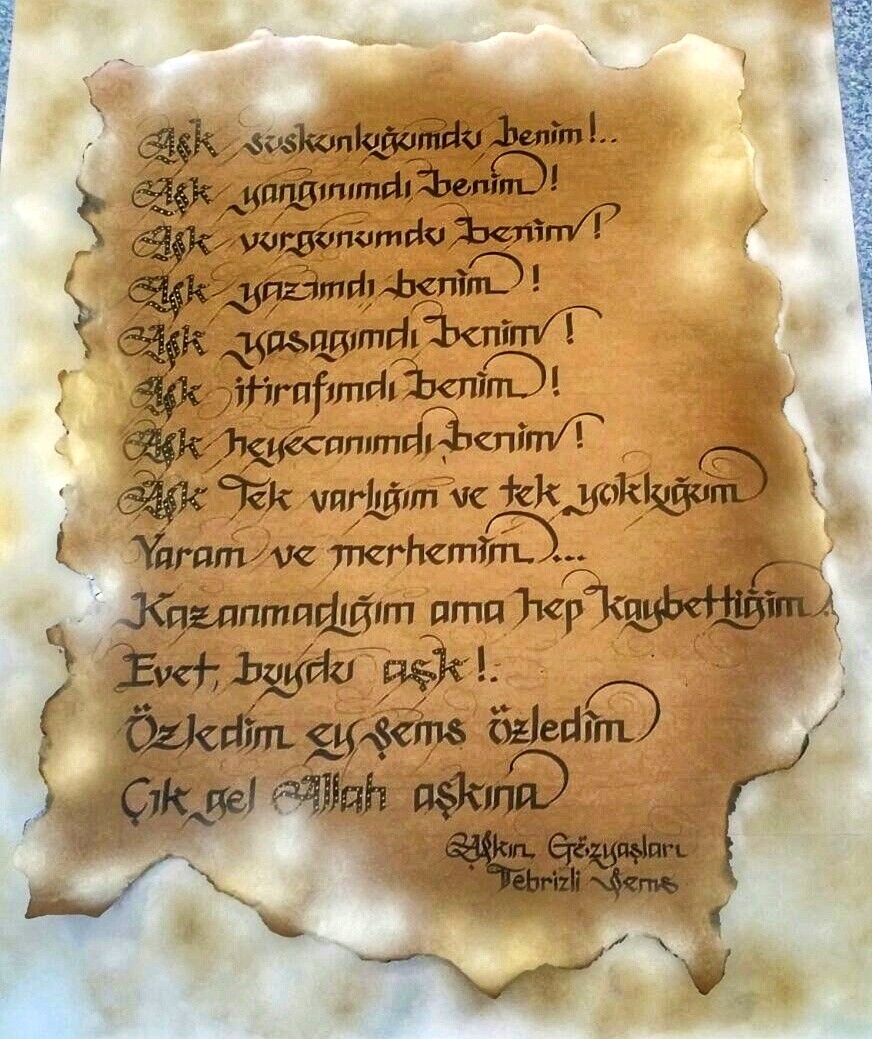 Aşk suskunluğumdu benim!..
Aşk yangınımdı benim!
Aşk vurgunumdu benim!
Aşk yazımdı benim!
Aşk yasagımdı benim!
Aşk itirafımdı benim!
Aşk heyecanımdı benim!
Aşk Tek varlığım ve tek yokluğum
Yaram ve merhemim...
Kazanmadığım ama hep kaybettiğim
Evet, buydu aşk!.
Özledim ey Şems özledim
Çık gel Allah aşkına
Aşkın Gözyaşları
Tebrizli Şems